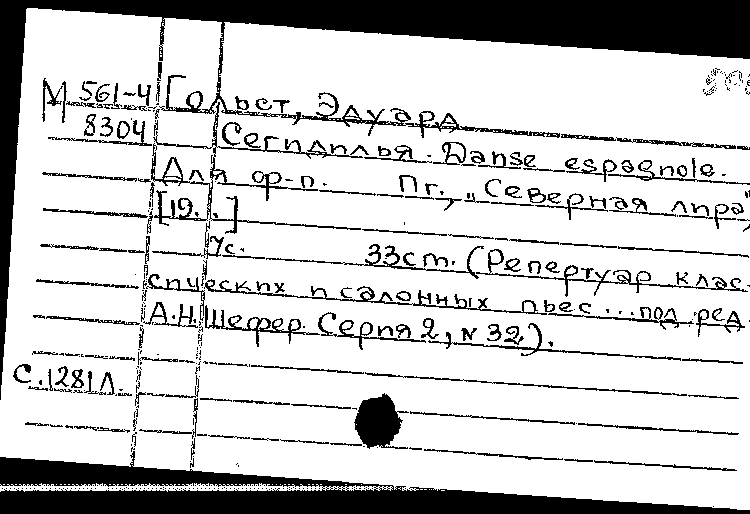 М 561-4 Гольст, Эдуард
8304 Сегидилья. Danse espagnole.
Для ф-п. Пг., "Северная лира",
[19. .]
7с. 33см. (Репертуар клас-
сических и салонных пьес... под ред.
А.Н. Шефер. Серия 2, № 32).
С.1281Л.